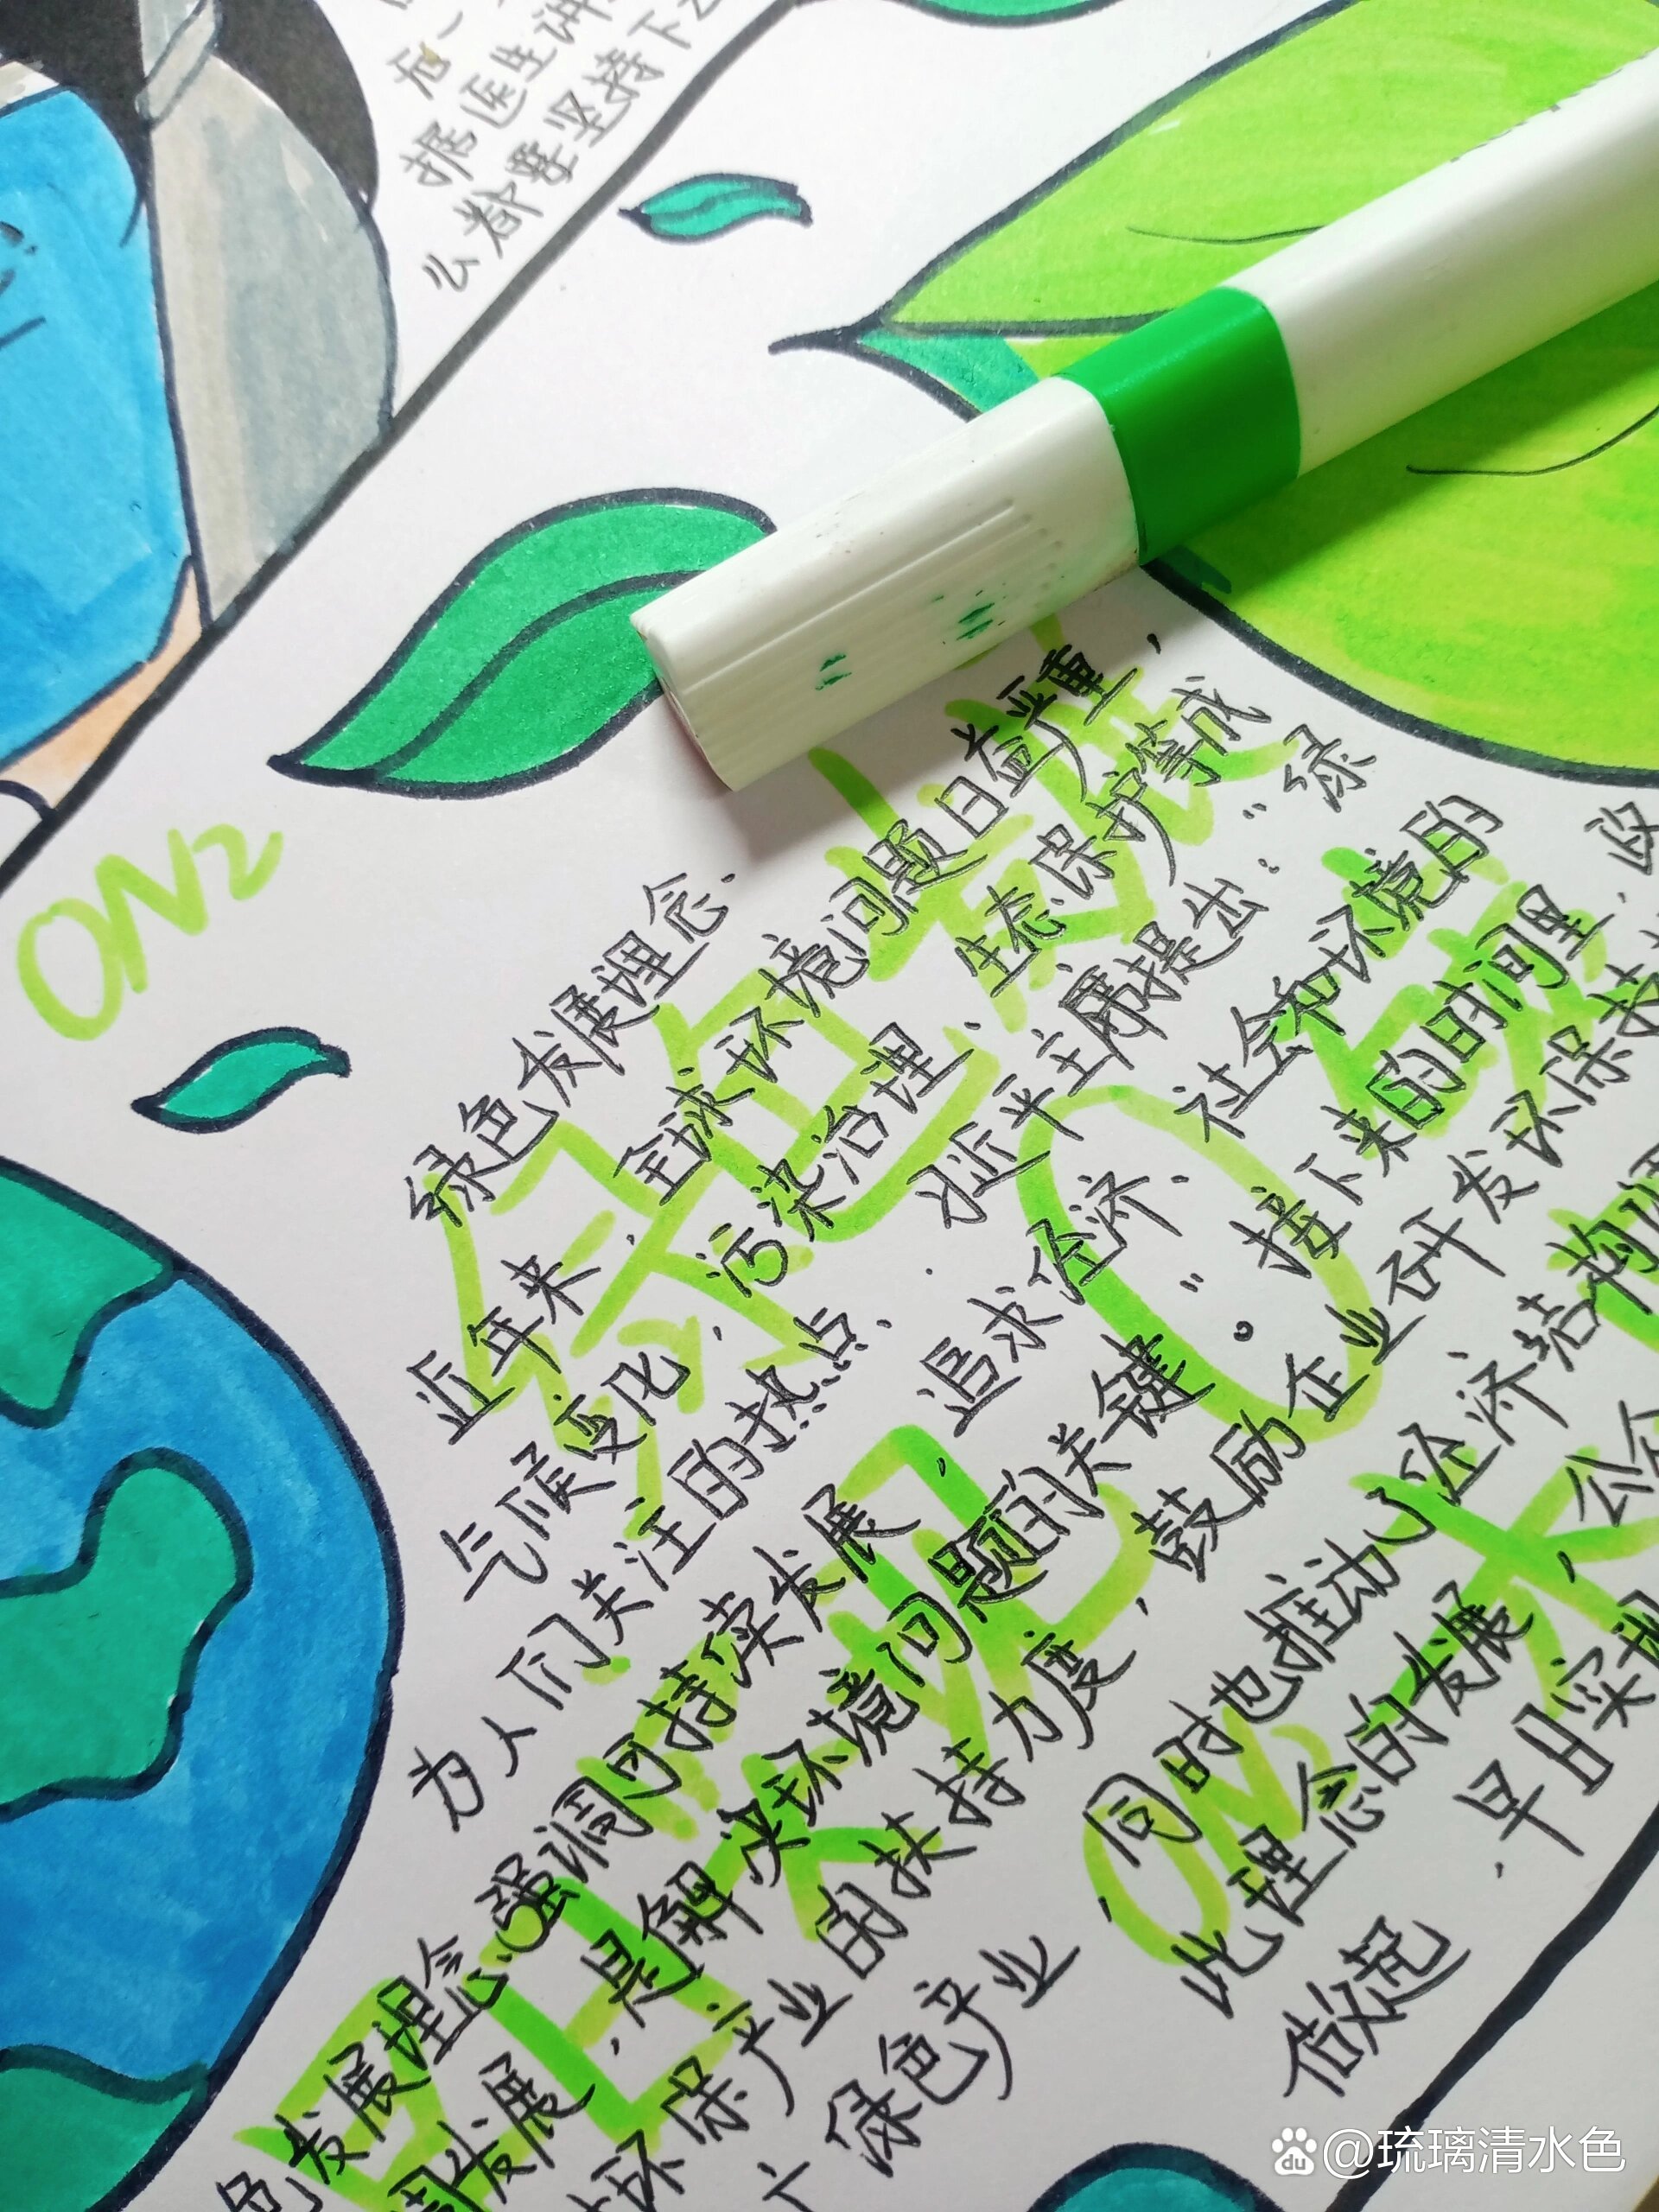 据医生讲
么都要坚持下
ON2
绿色发展理念.
近年来,全球环境问题日益严重,
气候变化,污染治理、生态保护等成
为人们关注的热点、习近平主席提出:“绿
色发展理念强调可持续发展,追求经济、社会和环境的
调发展,是解决环境问题的关键”。接下来的时间里.政
环保产业的扶持力度,鼓励企业研发环保技
广绿色产业,同时也推动了经济结构调
此理念的发展,公众
做起.早日实现
ON2
@琉璃清水色